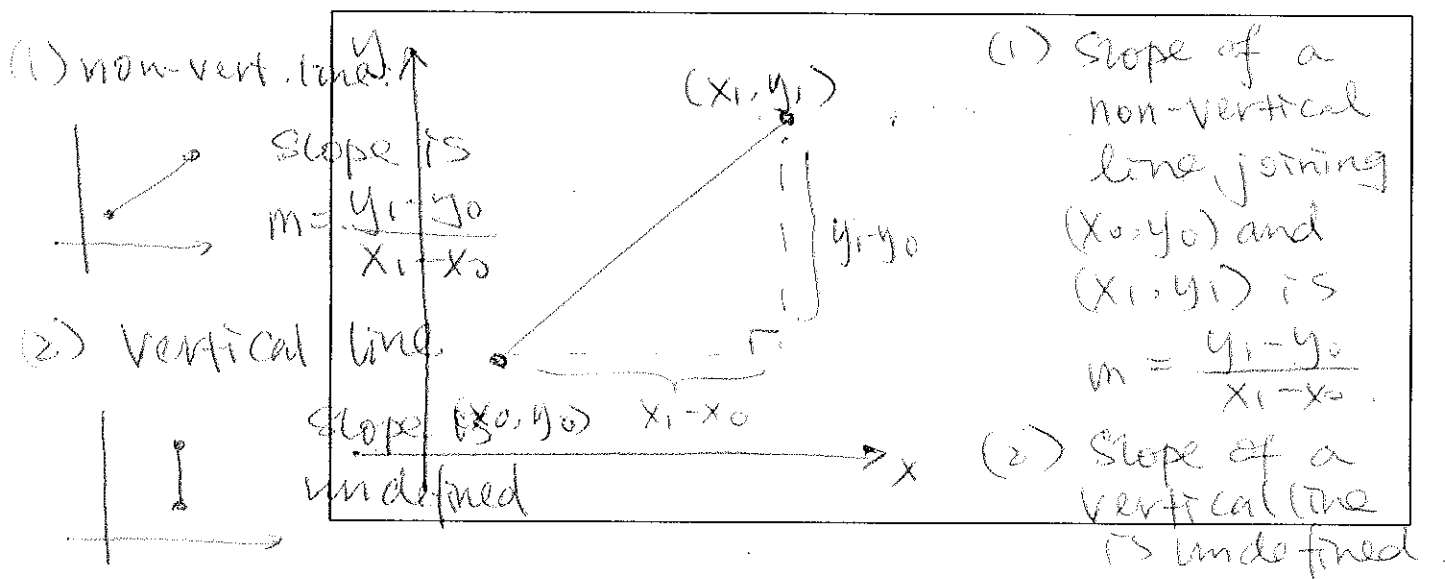 (1) non-vert. line.
slope is
m = y₁-y₀ / x₁-x₀
(2) vertical line.
slope is
undefined
y
(x₁, y₁)
y₁-y₀
(x₀, y₀)
x₁-x₀
x
(1) Slope of a
non-vertical
line, joining
(x₀, y₀) and
(x₁, y₁) is
m = y₁-y₀ / x₁-x₀.
(2) Slope of a
vertical line
is undefined.